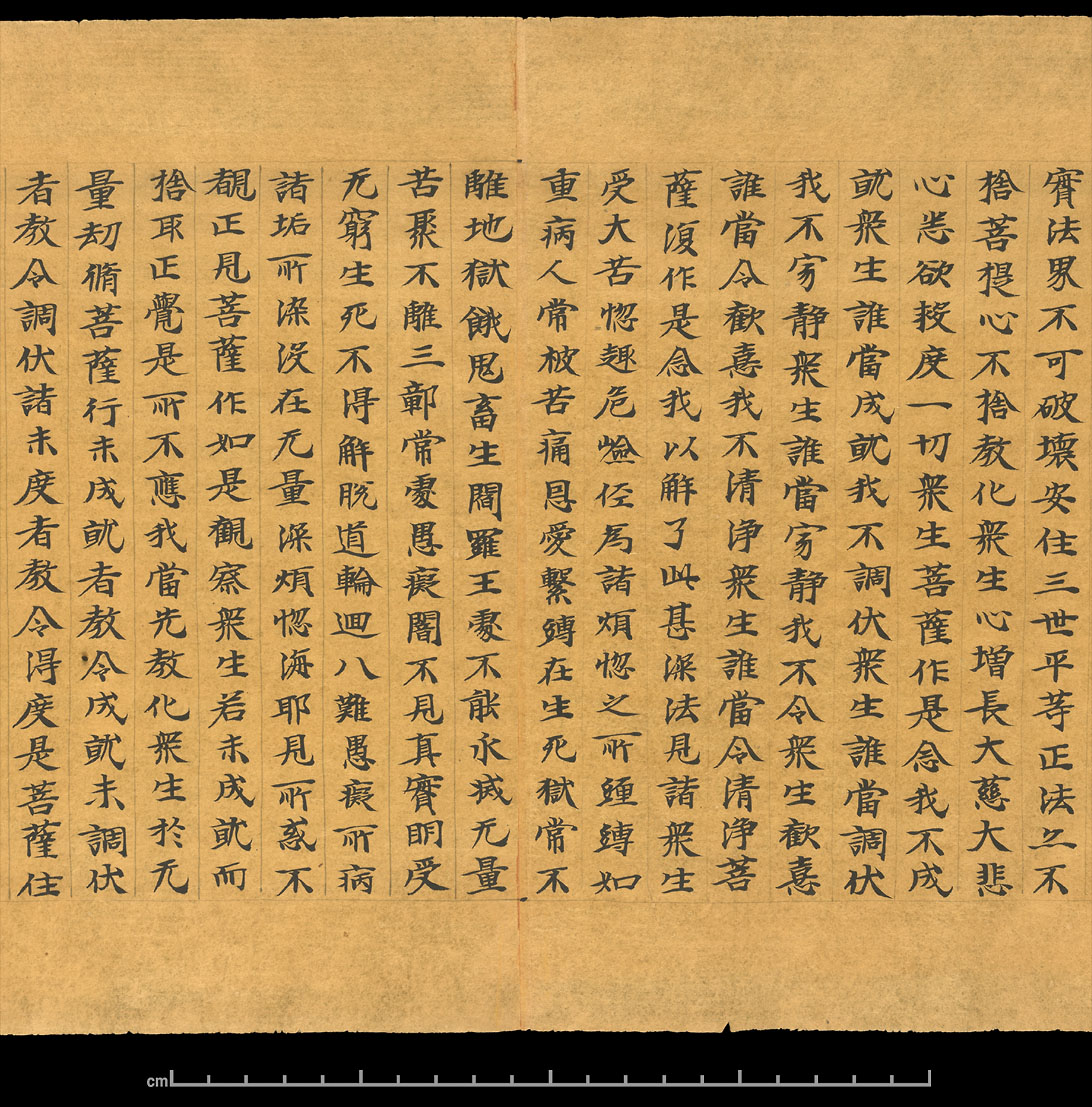 實法界不可破壞安住三世平等正法亦不
捨菩提心不捨教化衆生心增長大慈大悲
心悉欲救度一切衆生菩薩作是念我不成
就衆生誰當成就我不調伏衆生誰當調伏
我不寂靜衆生誰當寂靜我不令衆生歡憙
誰當令歡憙我不清淨衆生誰當令清淨菩
薩復作是念我以解了此甚深法見諸衆生
受大苦惱趣危嶮俓爲諸煩惱之所纏縛如
重病人常被苦痛恩愛繫縛在生死獄常不
離地獄餓鬼畜生閻羅王處不能永滅无量
苦聚不離三鄣常處愚癡闇不見真實明受
无窮生死不得解脫道輪迴八難愚癡所病
諸垢所染沒在无量深煩惱海耶見所惑不
覩正見菩薩作如是觀察衆生若未成就而
捨取正覺是所不應我當先教化衆生於无
量劫脩菩薩行未成就者教令成就未調伏
者教令調伏諸未度者教令得度是菩薩住
cm